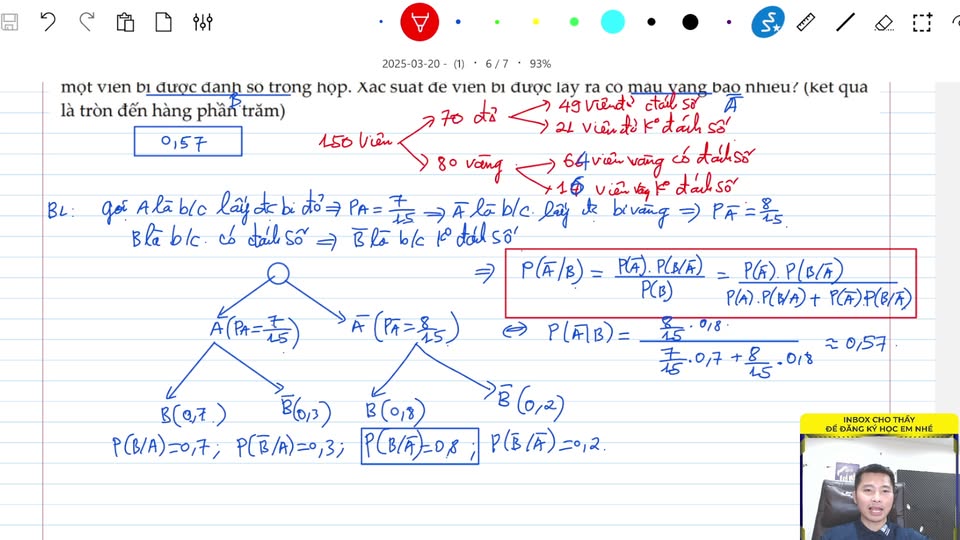 2025-03-20 - (1) • 6 / 7 • 93%
một viên bi được đánh số trong hộp. Xác suất để viên bi được lấy ra có màu vàng bao nhiêu? (kết quả
là tròn đến hàng phần trăm)
B
0,57
150 viên
70 đỏ
49 viên đỏ đánh số Ā
21 viên đỏ k° đánh số
80 vàng
64 viên vàng có đánh số
16 viên vàng k° đánh số
BL: gọi A là b/c lấy đc bi đỏ ⇒ PA = 7/15 ⇒ Ā là b/c lấy đc bi vàng ⇒ PĀ = 8/15
B là b/c có đánh số ⇒ B̄ là b/c k° đánh số
⇒ P(Ā/B) = P(Ā).P(B/Ā) / P(B) = P(Ā).P(B/Ā) / P(A).P(B/A) + P(Ā).P(B/Ā)
A (PA = 7/15) Ā (PĀ = 8/15)
⇔ P(Ā|B) = 8/15 . 0,8 / 7/15 . 0,7 + 8/15 . 0,8 ≈ 0,57.
B(0,7) B̄(0,3) B(0,8) B̄(0,2)
P(B/A)=0,7; P(B̄/A)=0,3; P(B/Ā)=0,8; P(B̄/Ā)=0,2.
INBOX CHO THẦY
ĐỂ ĐĂNG KÝ HỌC EM NHÉ